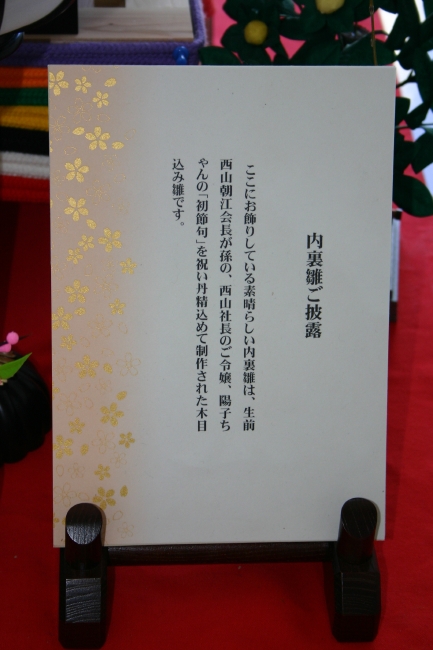 内裏雛ご披露
ここにお飾りしている素晴らしい内裏雛は、生前
西山朝江会長が孫の、西山社長のご令嬢、陽子ち
ゃんの「初節句」を祝い丹精込めて制作された木目
込み雛です。